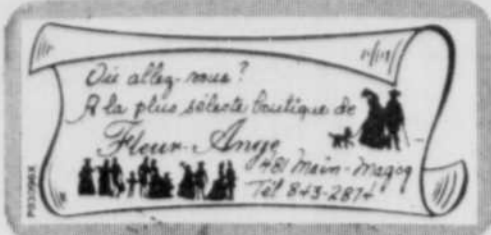 Où allez-vous?
A la plus sélecte boutique de
Fleur-Ange
481 Main-Magog
Tél 843-2874